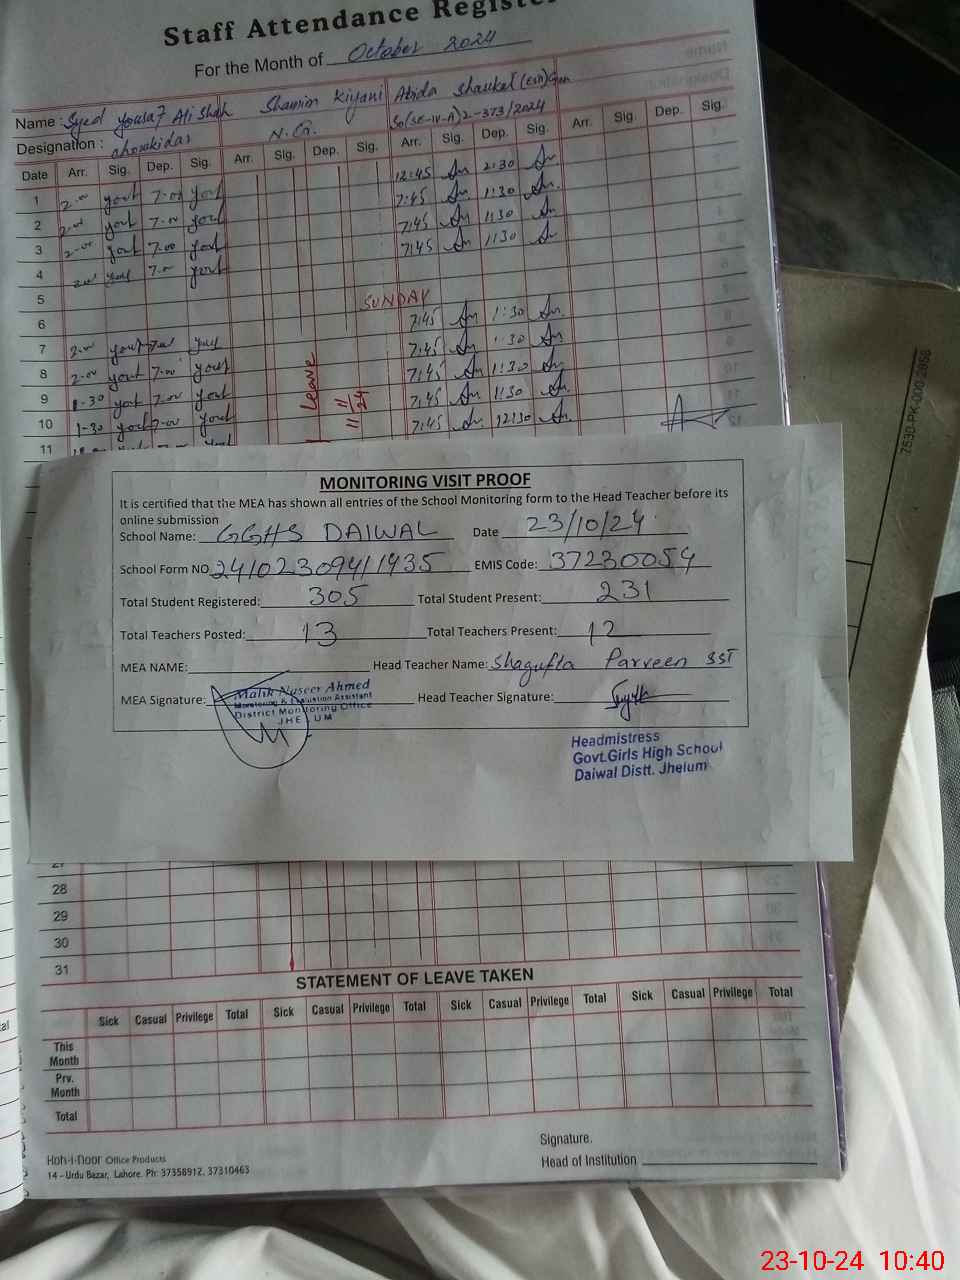 Staff Attendance Registe
For the Month of October 2024
Name : Syed yousaf Ali Shah Shamim Kiyani Abida Shaukat (Esh)
Designation : chowkidar N.Q. So(SE-IV-A)2-373/2024
Date Arr. Sig. Dep. Sig. Arr. Sig. Dep. Sig. Arr. Sig. Dep. Sig. Arr. Sig. Dep. Sig.
1 2-00 7-00 12:45 2:30
2 2-00 7-00 7:45 1:30
3 2-00 7-00 7:45 1:30
4 7-00 7:45 1:30
5
6 SUNDAY
7 2-00 7-00 7:45 1:30
8 2-00 7-00 7:45 1:30
9 1-30 7-00 7:45 1:30
10 1-30 7-00 7:45 1:30
11 7:45 12:30
Leave
7530-PK-000-2868
MONITORING VISIT PROOF
It is certified that the MEA has shown all entries of the School Monitoring form to the Head Teacher before its
online submission
School Name: GGHS DAIWAL Date 23/10/24
School Form NO 24102309411435 EMIS Code: 37230054
Total Student Registered: 305 Total Student Present: 231
Total Teachers Posted: 13 Total Teachers Present: 12
MEA NAME: Head Teacher Name: Shagufta Parveen SST
MEA Signature: Head Teacher Signature:
Malik Naseer Ahmed
Monitoring & Evaluation Assistant
District Monitoring Office
JHELUM
Headmistress
Govt.Girls High School
Daiwal Distt. Jhelum
27
28
29
30
31
STATEMENT OF LEAVE TAKEN
Sick Casual Privilege Total Sick Casual Privilege Total Sick Casual Privilege Total Sick Casual Privilege Total
This
Month
Prv.
Month
Total
Signature.
Head of Institution
Koh-i-noor Office Products
14 – Urdu Bazar, Lahore. Ph: 37358912, 37310463
23-10-24 10:40